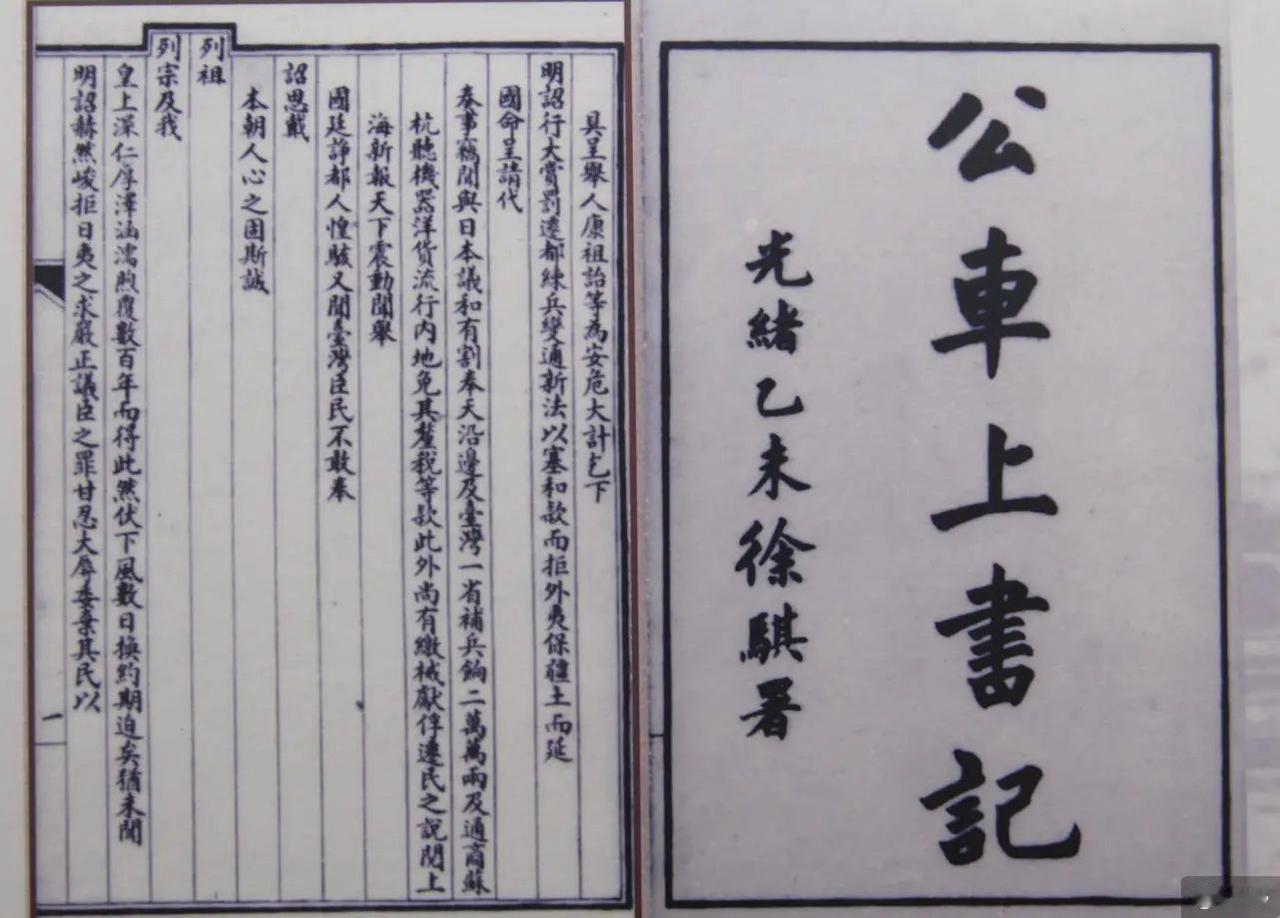 公車上書記
光緒乙未徐騏署
具呈舉人康祖詒等為安危大計乞下
明詔行大賞罰遷都練兵變通新法以塞和款而拒外夷保疆土而延
國命呈請代
奏事竊聞與日本議和有割奉天沿邊及臺灣一省補兵餉二萬萬兩及通商蘇
杭聽機器洋貨流行內地免其釐稅等款此外尚有繳械獻俘遷民之說閱上
海新報天下震動聞舉
國廷諍都人惶駭又聞臺灣臣民不敢奉
詔思戴
本朝人心之固斯誠
列祖
列宗及我
皇上深仁厚澤涵濡煦覆數百年而得此然伏下風數日換約期迫矣猶未聞
明詔赫然峻拒日夷之求嚴正議臣之罪甘忍大辱委棄其民以
一